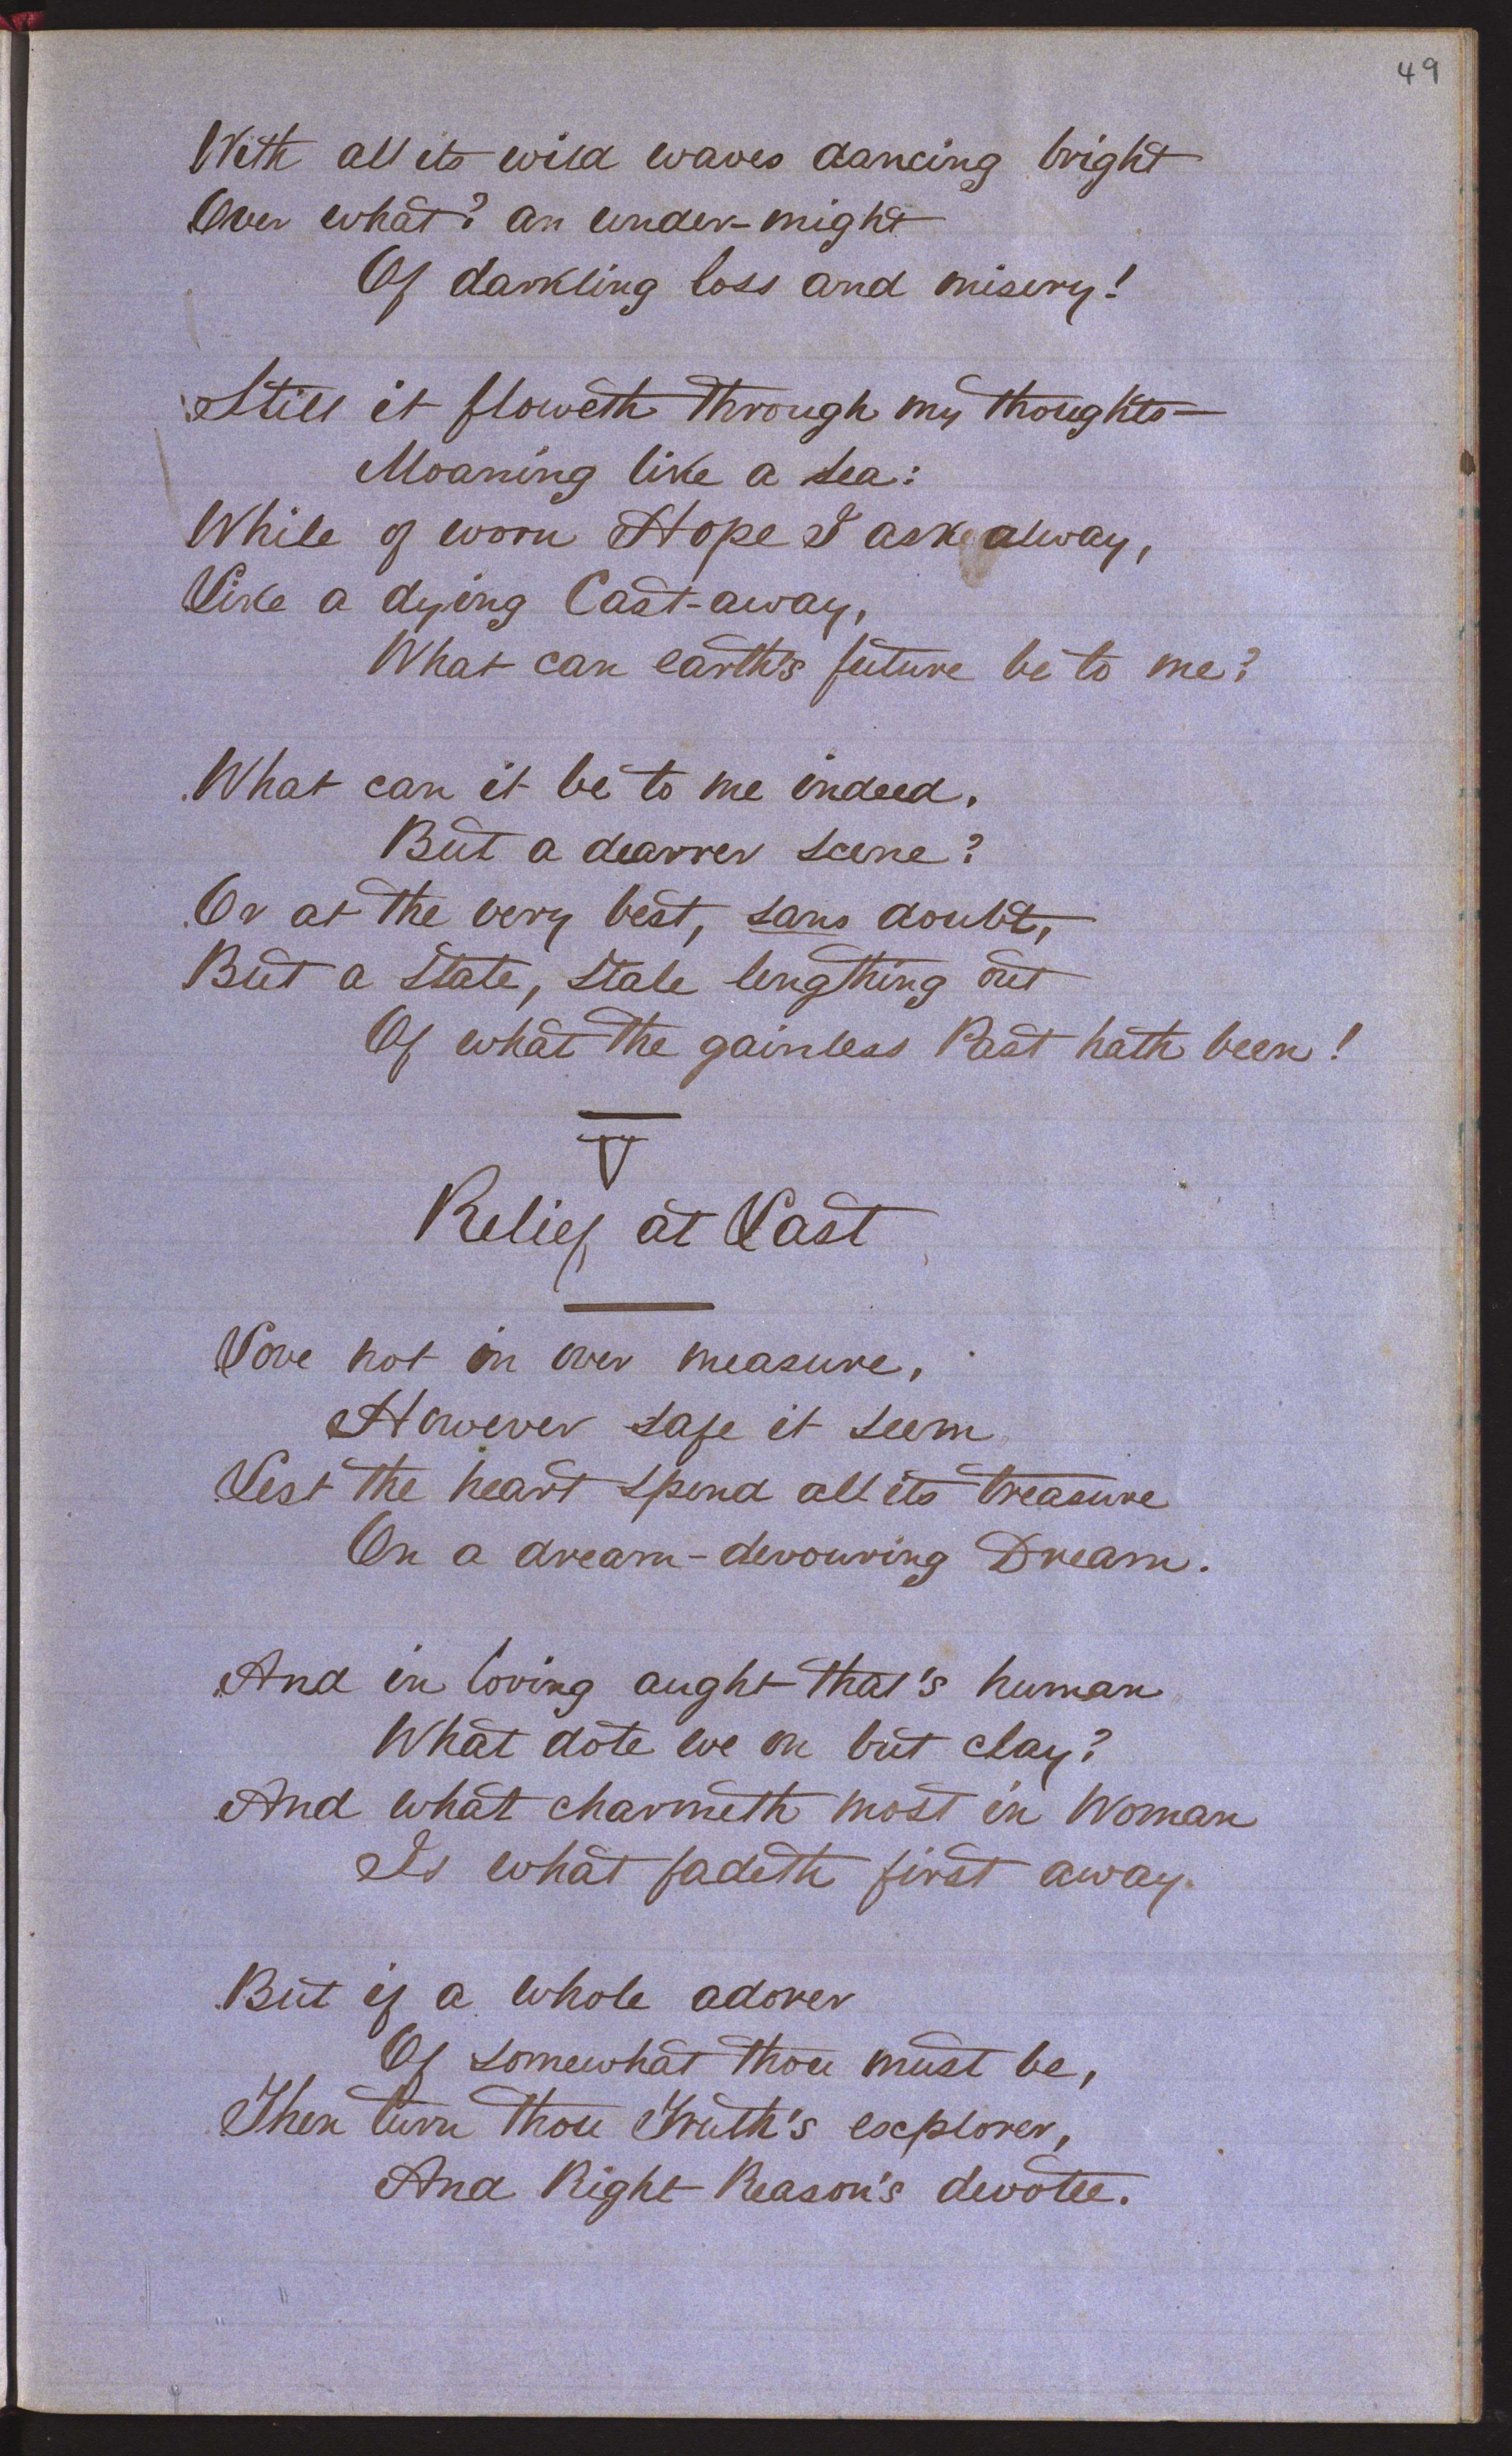 49
With all its wild waves dancing bright
Over what? an under-might
Of darkling loss and misery!
Still it floweth through my thoughts—
Moaning like a sea:
While of worn Hope I ask alway,
Like a dying Cast-away,
What can earth's future be to me?
What can it be to me indeed,
But a dearrer scene?
Or at the very best, sans doubt,
But a state, stale lengthing out
Of what the gainless Past hath been!
V
Relief at Last
Love not in over measure,
However safe it seem
Lest the heart spend all its treasure
On a dream-devouring Dream.
And in loving aught that's human
What dote we on but clay?
And what charmeth most in Woman
Is what fadeth first away.
But if a whole adorer
Of somewhat thou must be,
Then turn thou Truth's explorer,
And Right Reason's devotee.